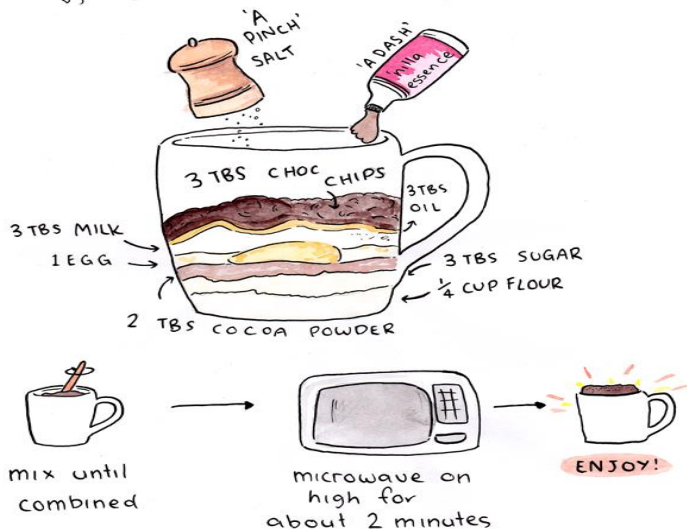 'A
PINCH'
SALT
'A DASH'
'nilla
essence
3 TBS CHOC CHIPS
3 TBS
OIL
3 TBS MILK
1 EGG
3 TBS SUGAR
1/4 CUP FLOUR
2 TBS COCOA POWDER
mix until
combined
microwave on
high for
about 2 minutes
ENJOY!